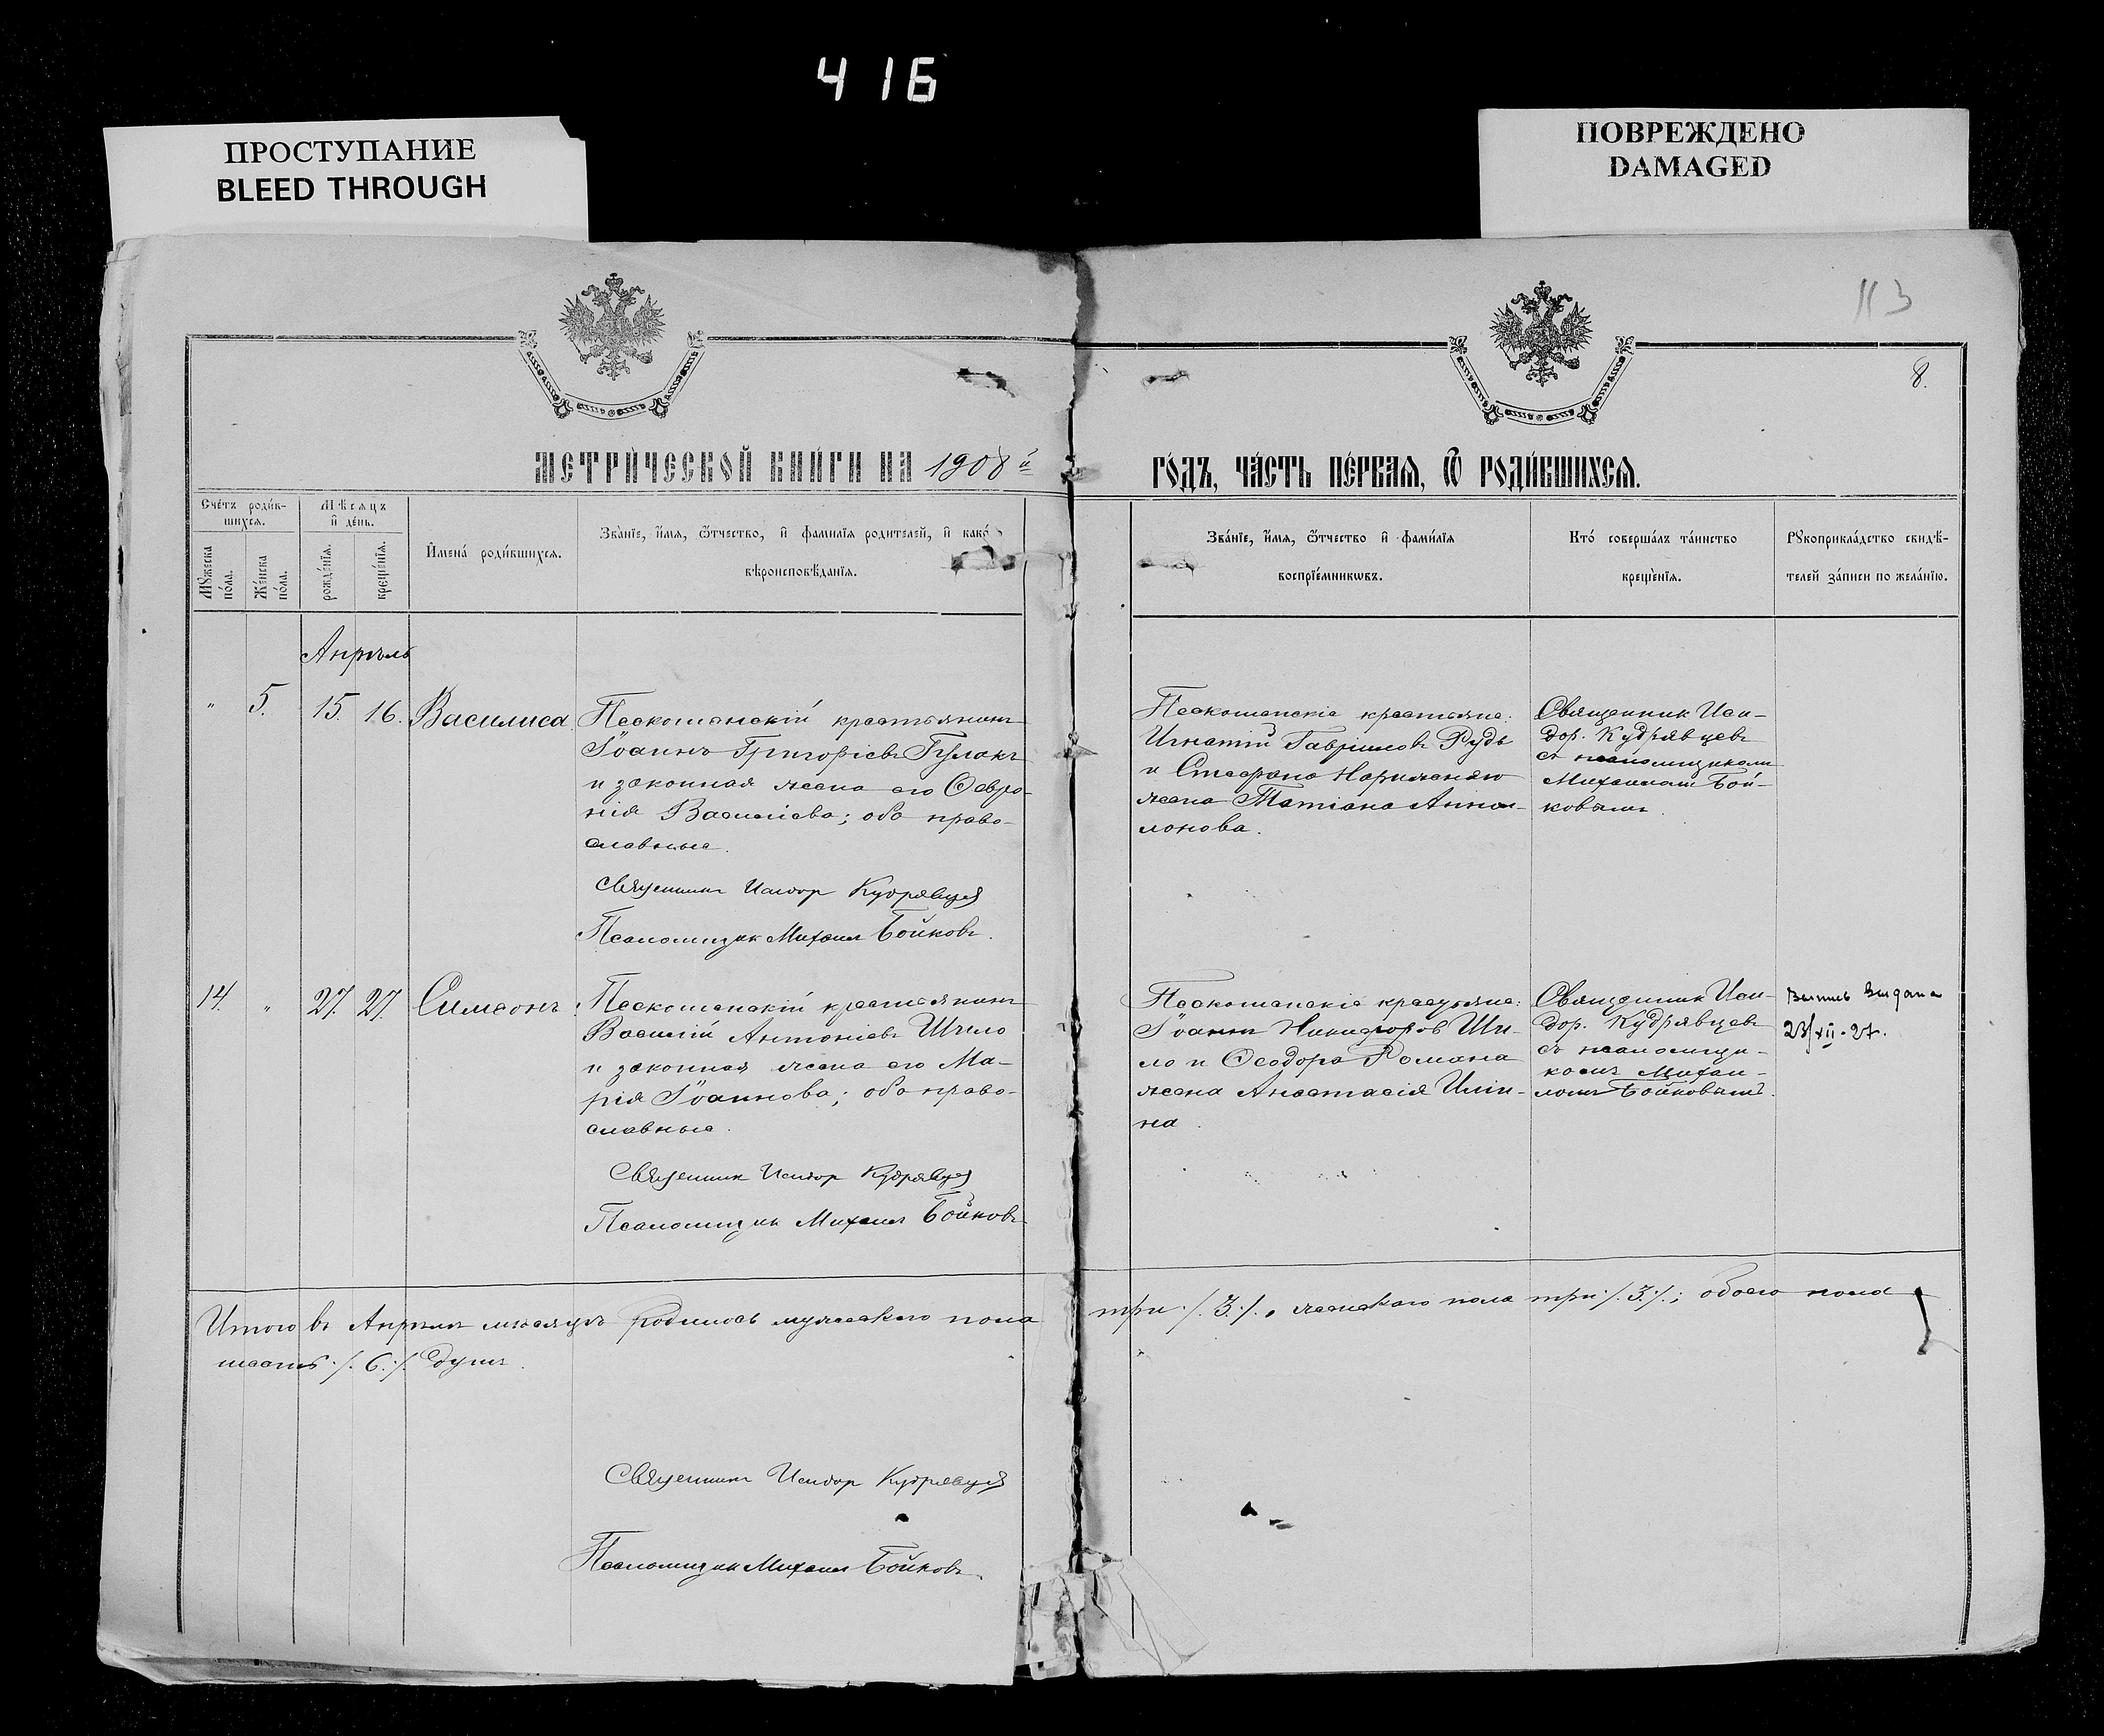 416
ПРОСТУПАНИЕ
BLEED THROUGH
ПОВРЕЖДЕНО
DAMAGED
113
8.
МЕТРИ́ЧЕСКОЙ КНИ́ГИ НА 1908й
ГО́ДЪ, ЧА́СТЬ ПЕ́РВАѦ, Ѿ РОДИ́ВШИХСѦ.
Сче́тъ роди́в-
шихсѧ.
Мѣсѧцъ
и҆ де́нь.
Мꙋ́жеска
по́ла.
Же́нска
по́ла.
рожде́нїѧ.
креще́нїѧ.
И҆мена̀ роди́вшихсѧ.
Зва́нїе, и҆́мѧ, ѻ҆́тчество, и҆ фами́лїѧ роди́телей, и҆ како́
вѣроисповѣ́данїѧ.
Зва́нїе, и҆́мѧ, ѻ҆́тчество и҆ фами́лїѧ
воспрїе́мникѡвъ.
Кто̀ соверша́лъ та́инство
креще́нїѧ.
Рꙋкоприкла́дство свидѣ́-
телей за́писи по жела́нїю.
Апрѣль
" 5. 15. 16. Василиса.
Пескошанскій крестьянинъ
Іоаннъ Григоріевъ Гулакъ
и законная жена его Февро-
нія Васильева; оба право-
славные.
Священникъ Исидор Кудрявцев
Псаломщик Михаил Бойковъ.
Пескошанскіе крестьяне:
Игнатій Гавриловъ Рудь
и Стефана
жена Татіана
лонова.
Священник Иси-
дор. Кудрявцевъ
съ псаломщикомъ
Михаиломъ Бой-
ковымъ.
14. " 27. 27. Симеонъ.
Пескошанскій крестьянинъ
Василій Антоніевъ Шило
и законная жена его Ма-
рія Іоаннова; оба право-
славные.
Священник Исидор Кудрявцев
Псаломщик Михаил Бойковъ
Пескошанскіе крестьяне:
Іоанн Никифоров Ши-
ло и Феодора Романа
жена Анастасія Иліи-
на.
Священник Иси-
дор. Кудрявцевъ
съ псаломщи-
комъ Михаи-
ломъ Бойковымъ.
Выпись выдана
23/XII-27.
Итого въ Апрѣлѣ мѣсяцѣ родилось мужескаго пола три ./. 3 ./., женскаго пола три ./. 3 ./.; обоего пола
шесть ./. 6 ./. душъ.
Священникъ Исидор Кудрявцев
Псаломщик Михаил Бойковъ.